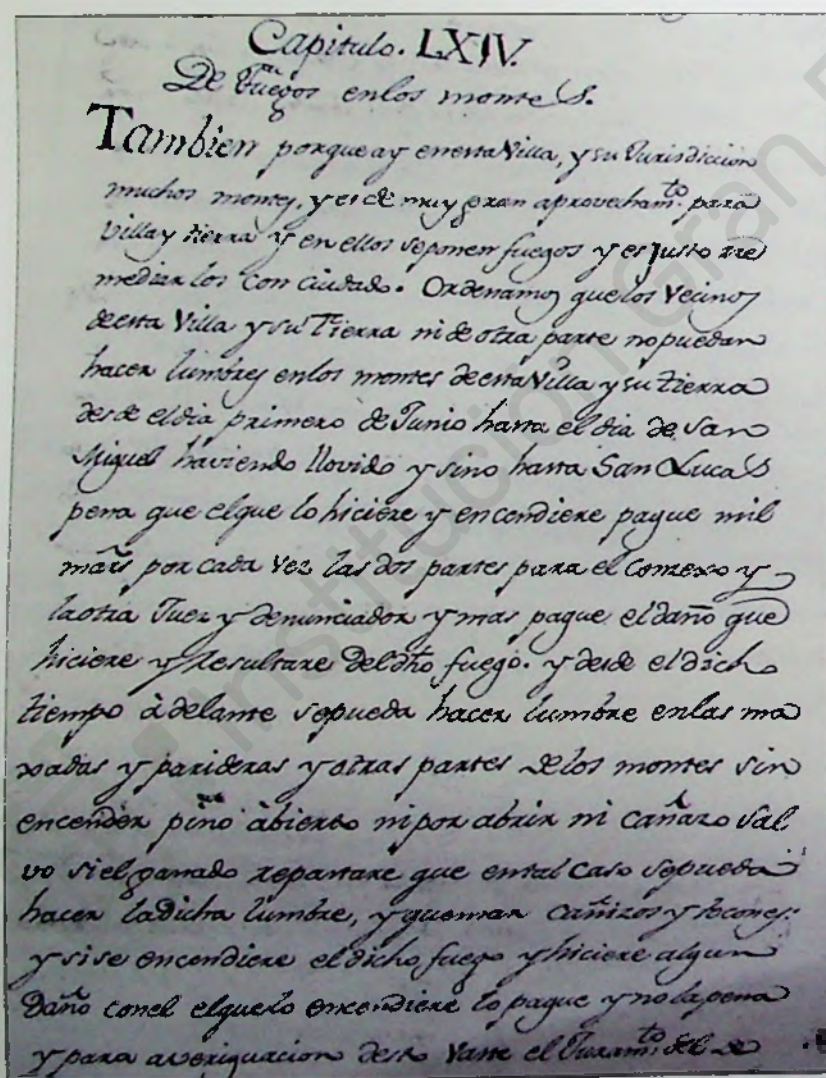 Capitulo. LXIV.
De Fuegos enlos monteS.
Tambien porque ay enesta Villa, y su Jurisdicion
muchos montes, y es de muy gran aprovecham.to para
Villa y tierra y en ellos seponen fuegos y es Justo rre
mediarlos con cuidado. Ordenamos quelos Vecinos
de esta Villa y su Tierra ni de otra parte nopuedan
hacer lumbres enlos montes de esta Villa y su tierra
desde eldia primero de Junio hasta el dia de san
Miguel haviendo llovido y sino hasta San LucaS
pena que elque lo hiciere y encendiere pague mil
mars por cada vez las dos partes para el Conzexo y
la otra Juez y denunciador y mas pague el daño que
hiciere y Resultare del dho fuego. y desde el dicho
tiempo àdelante sepueda hacer lumbre enlas ma
xadas y parideras y otras partes de los montes sin
encender pino àbierto nipor abrir ni cañazo Sal
vo si el ganado repastare que ental Caso sepueda
hacer ladicha lumbre, y quemar Cañizos y tocones:
y si se encendiere el dicho fuego y hiciere algun
Daño conel elquelo encendiere lo pague y no la pena
y para averiguacion desto Vaste el Juram.to del de
Institución Gran